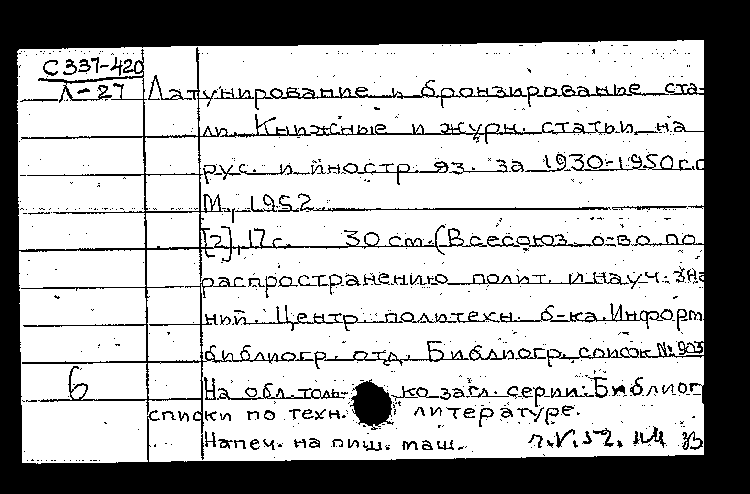 С337-420
Л-27 Латунирование и бронзирование ста-
ли. Книжные и журн. статьи на
рус. и иностр. яз. за 1930-1950г.г
М., 1952
[2], 17с. 30 см. (Всесоюз. о-во по
распространению полит. и науч. зна
ний. Центр. политехн. б-ка. Информ
библиогр. отд. Библиогр. список № 903
6 На обл. толь- ко загл. серии: Библиогр
списки по техн. литературе.
Напеч. на пиш. маш.